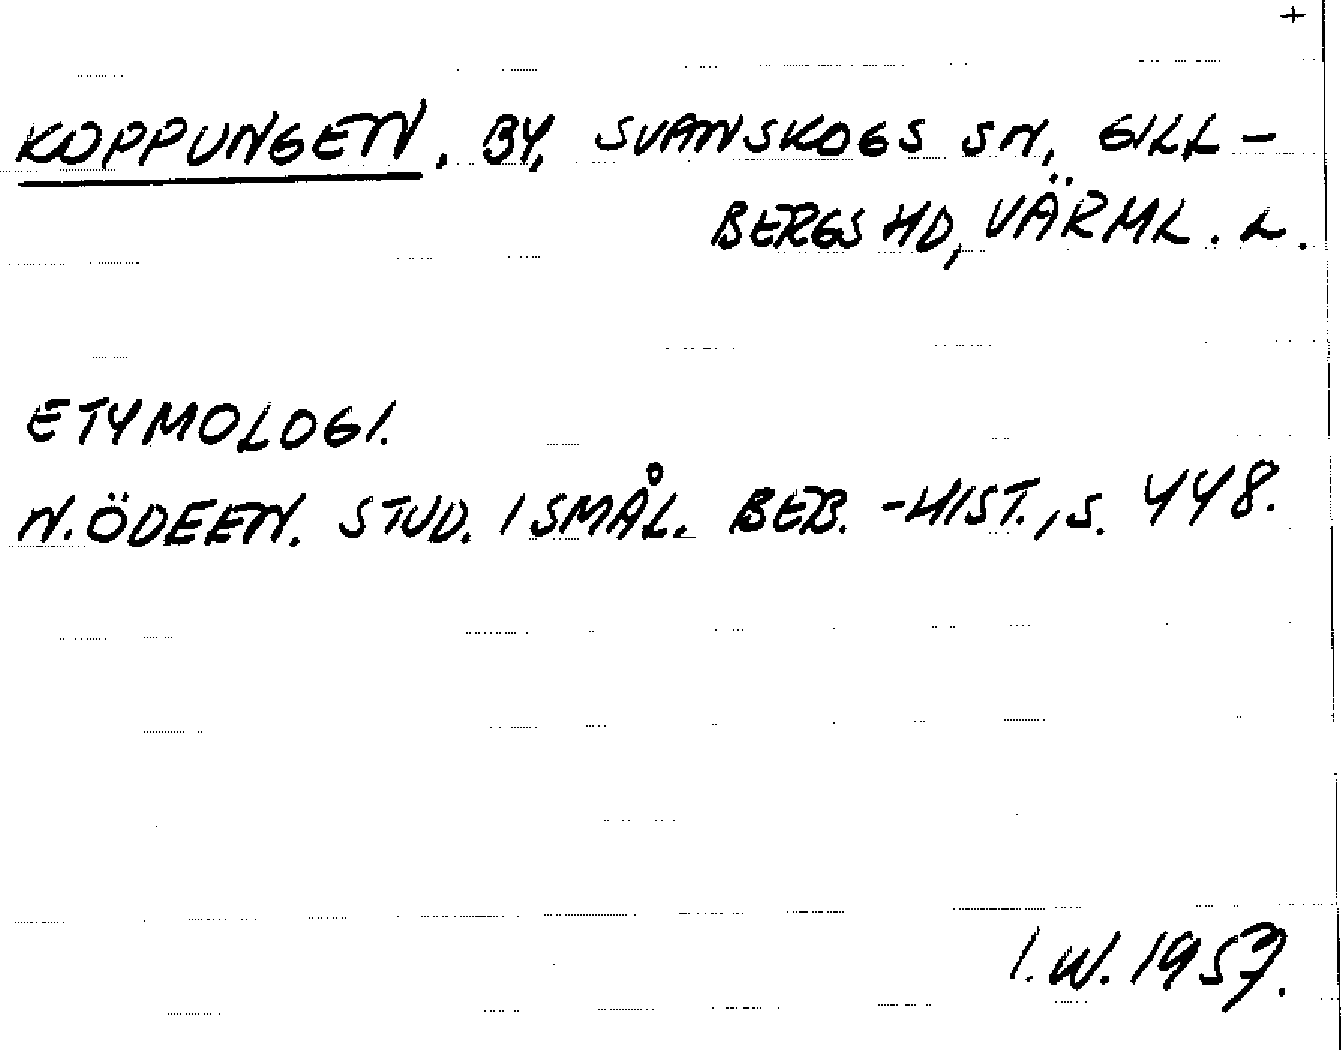 +
KOPPUNGEN. BY, SVANSKOGS SN, GILL-
BERGS HD, VÄRML. L.
ETYMOLOGI.
N. ÖDEEN. STUD. I SMÅL. BEB.-HIST., S. 448.
I.W. 1957.